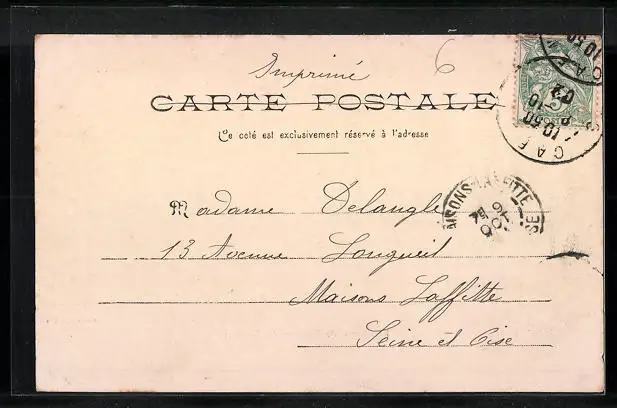 Imprimé 6
CARTE POSTALE
Ce coté est exclusivement réservé à l'adresse
Madame Delangle
13 Avenue Longueil
Maisons Laffitte
Seine et Oise
MAISONS-LAFFITTE
9
OCT
10 50
10 50
04